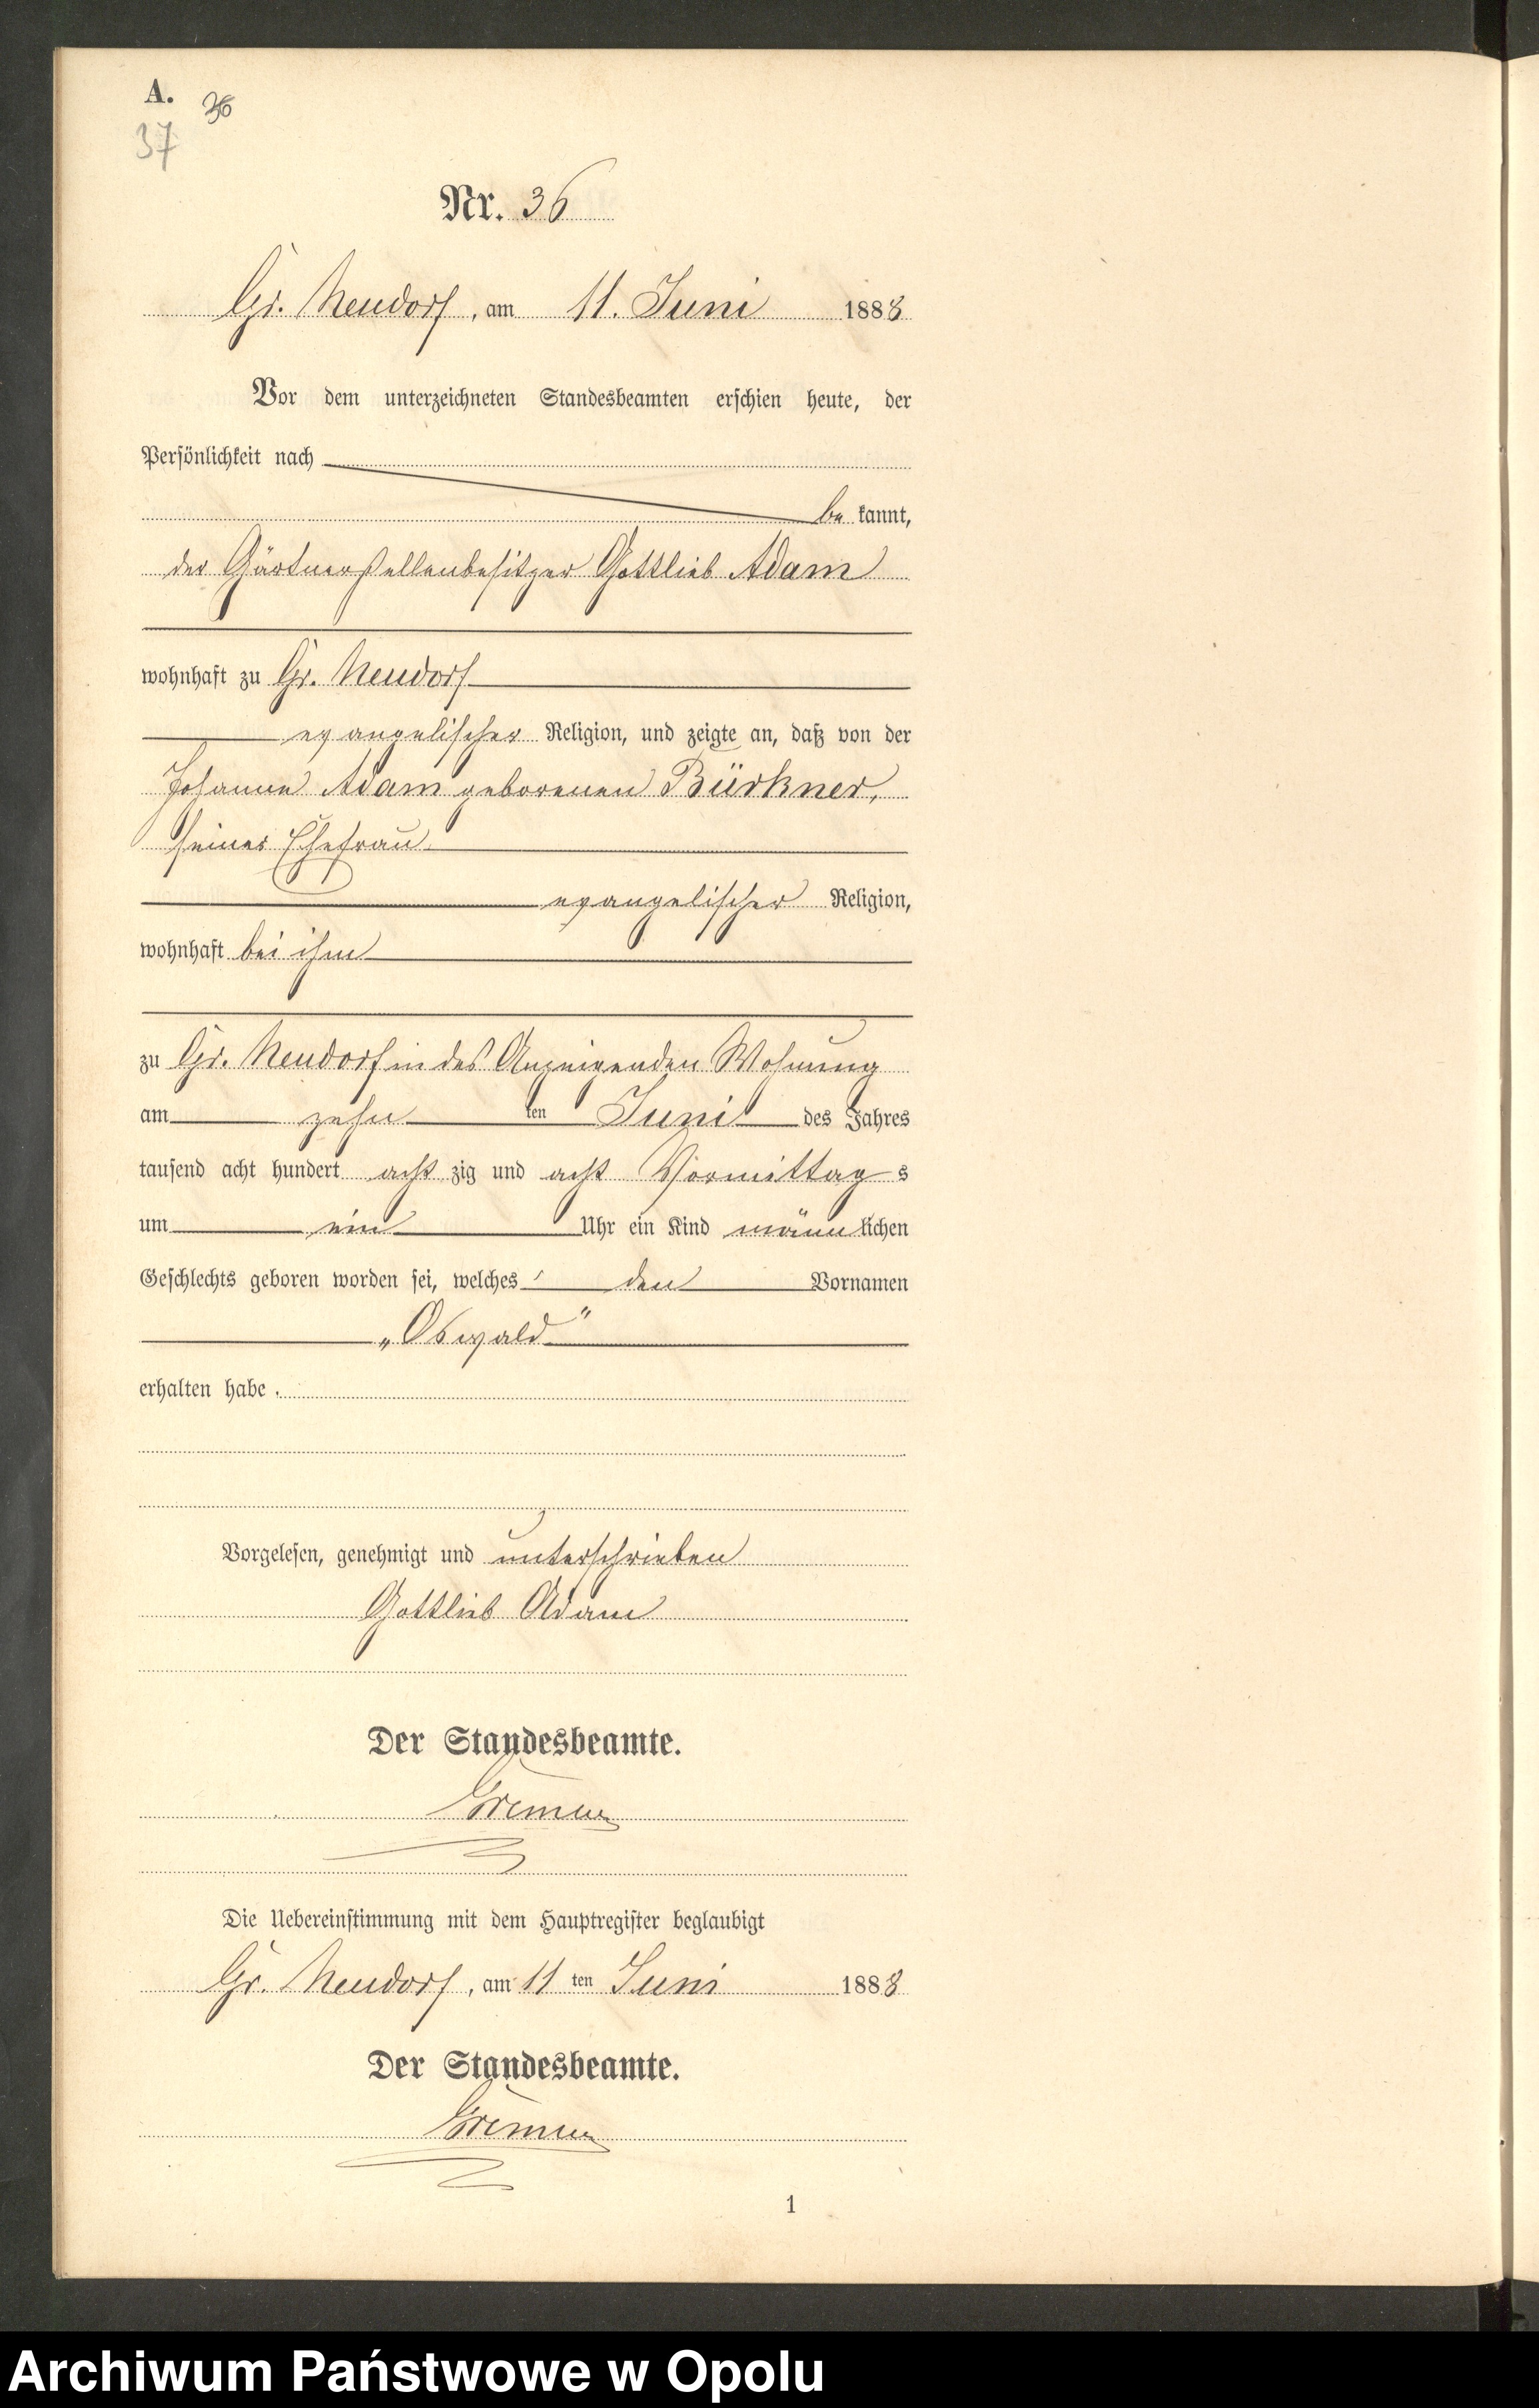 A. 36
37
Nr. 36
Gr. Neudorf, am 11. Juni 1888
Vor dem unterzeichneten Standesbeamten erschien heute, der
Persönlichkeit nach
be kannt,
der Gärtnerstellenbesitzer Gottlieb Adam
wohnhaft zu Gr. Neudorf
evangelischer Religion, und zeigte an, daß von der
Johanne Adam geborenen Bürkner,
seiner Ehefrau
evangelischer Religion,
wohnhaft bei ihm
zu Gr. Neudorf in des Anzeigenden Wohnung
am zehn ten Juni des Jahres
tausend acht hundert acht zig und acht Vormittag s
um ein Uhr ein Kind männ lichen
Geschlechts geboren worden sei, welches den Vornamen
„Oswald"
erhalten habe.
Vorgelesen, genehmigt und unterschrieben
Gottlieb Adam
Der Standesbeamte.
Die Uebereinstimmung mit dem Hauptregister beglaubigt
Gr. Neudorf, am 11 ten Juni 1888
Der Standesbeamte.
1
Archiwum Państwowe w Opolu